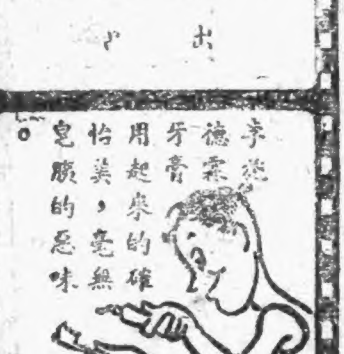 出
李施
德霖
牙膏
用起來的確
怡美，毫無
皂膩的惡味